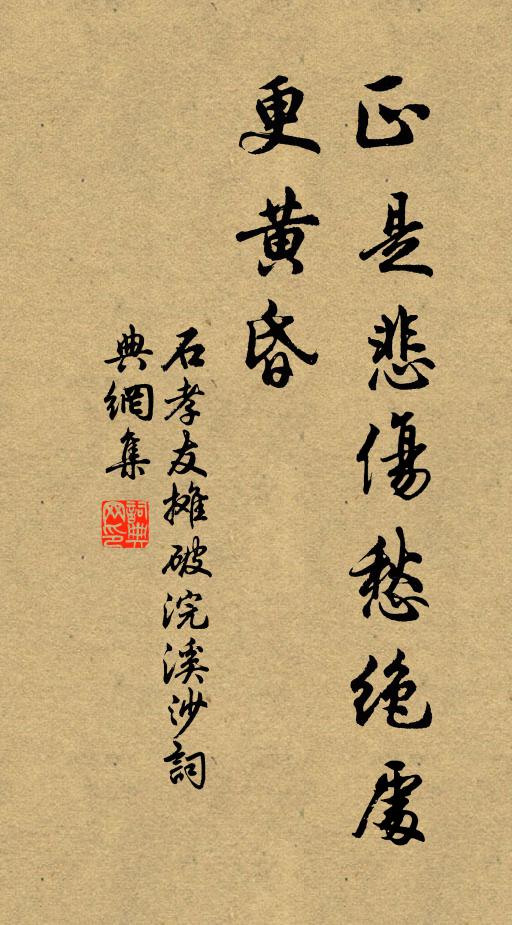 正是悲傷愁絶處
更黃昏
石孝友攤破浣溪沙詞
典網集
詞典網印